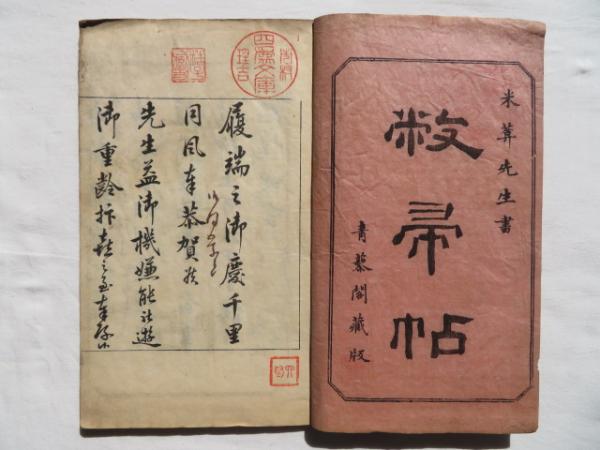 米葊先生書
敝帚帖
青藜閣藏版
履端之御慶千里
同風奉恭賀候
先生益御機嫌能被遊
御重齢抃喜之至奉存候